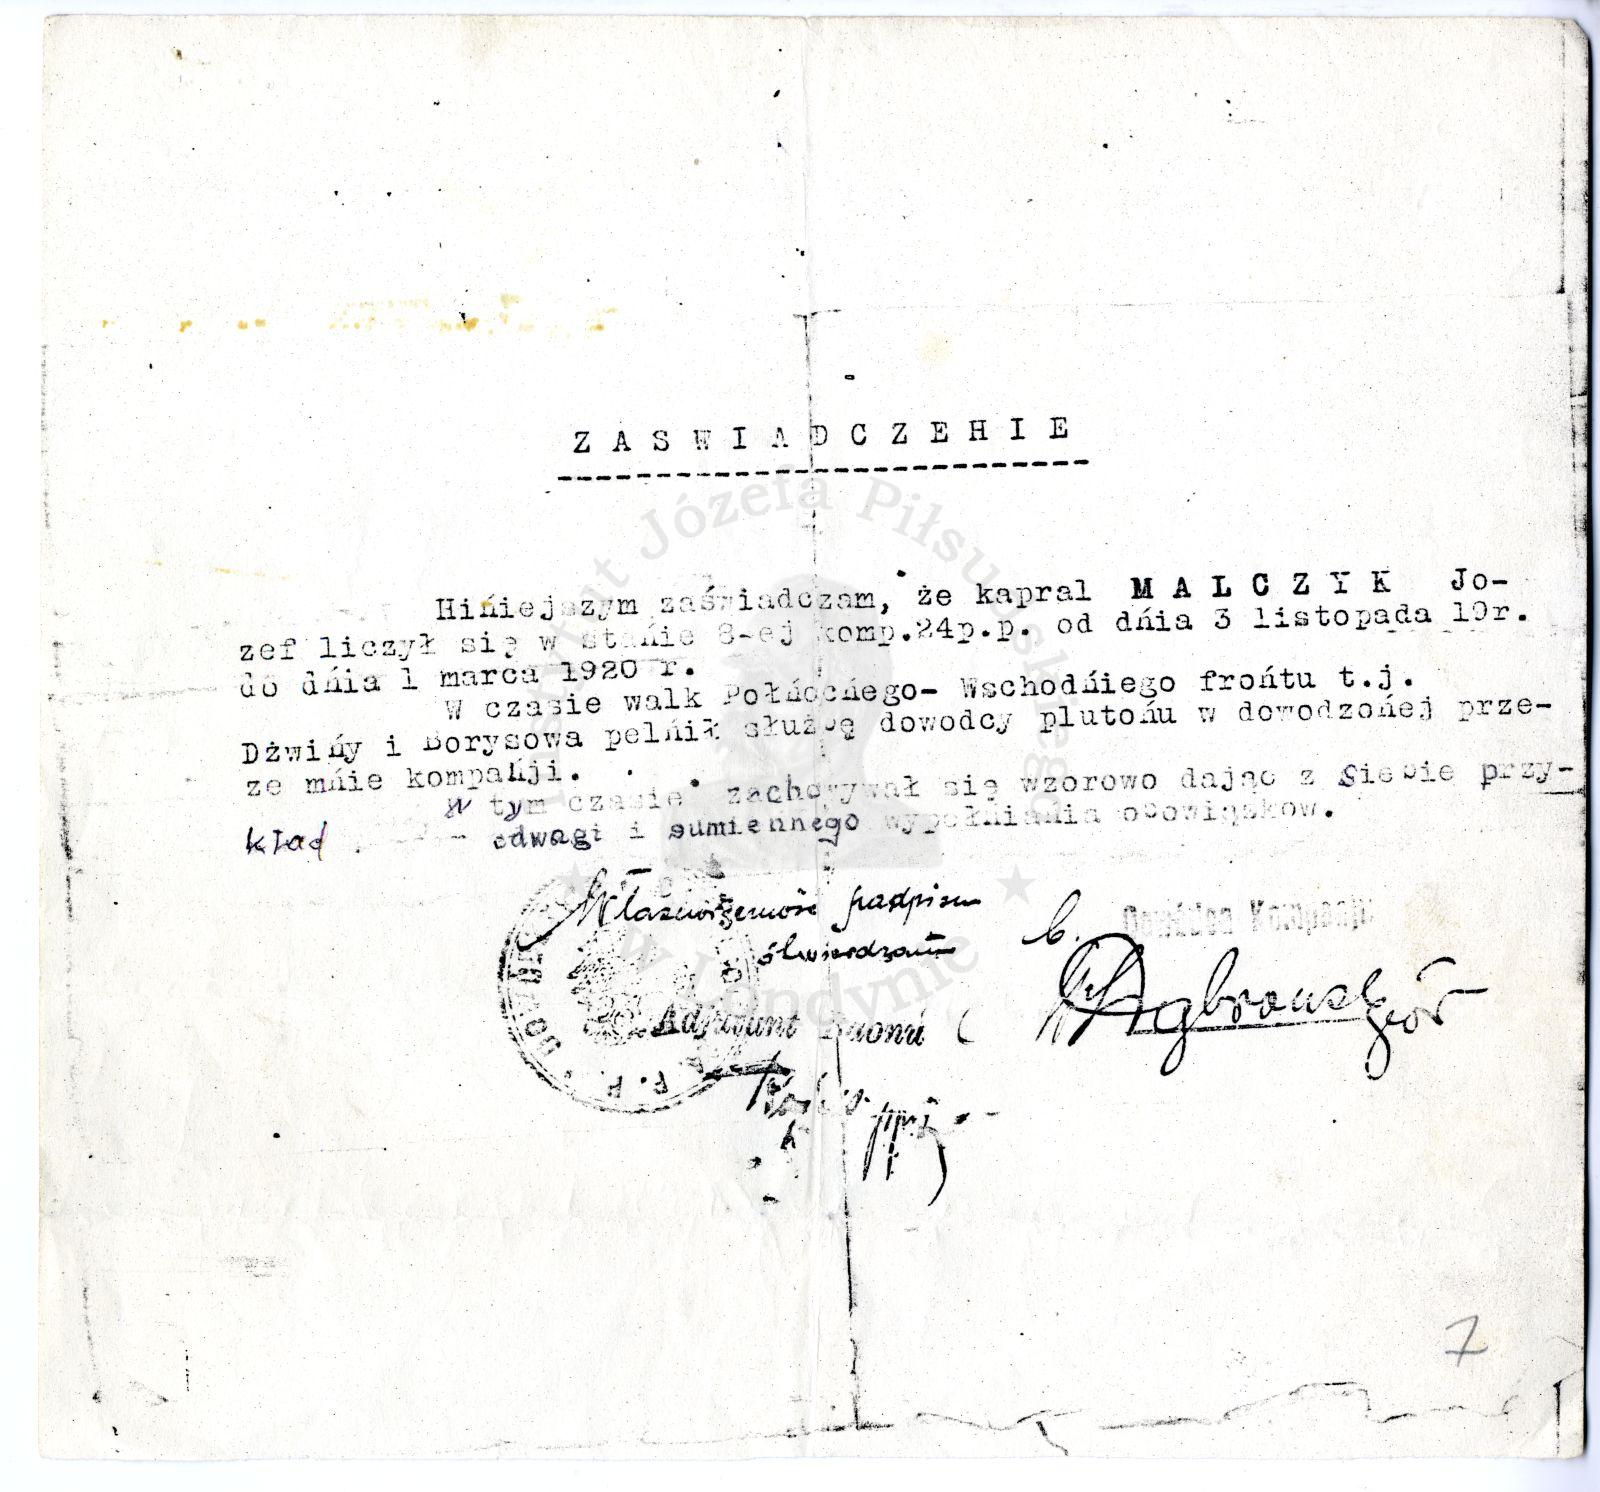 Z A S W I A D C Z E H I E
Hińiejszym zaświadczam, że kapral M A L C Z Y K Jo-
zef liczył się w stańie 8-ej komp.24p.p. od dńia 3 listopada 19r.
do dńia 1 marca 1920 r.
W czasie walk Połńocńego- Wschodńiego frońtu t.j.
Dźwińy i Borysowa pełńił służbę dowodcy plutońu w dowodzońej prze-
ze mńie kompańji.
W tym czasie zachowywał się wzorowo dając z siebie przy-
kład odwagi i sumiennego wypełniania obowiązkow.
Własnoręczność podpisu
stwierdzam
b. Dowódca Kompanji
Adjutant Baonu
Dąbrowski
ppor.
7
Instytut Józefa Piłsudskiego
w Londynie